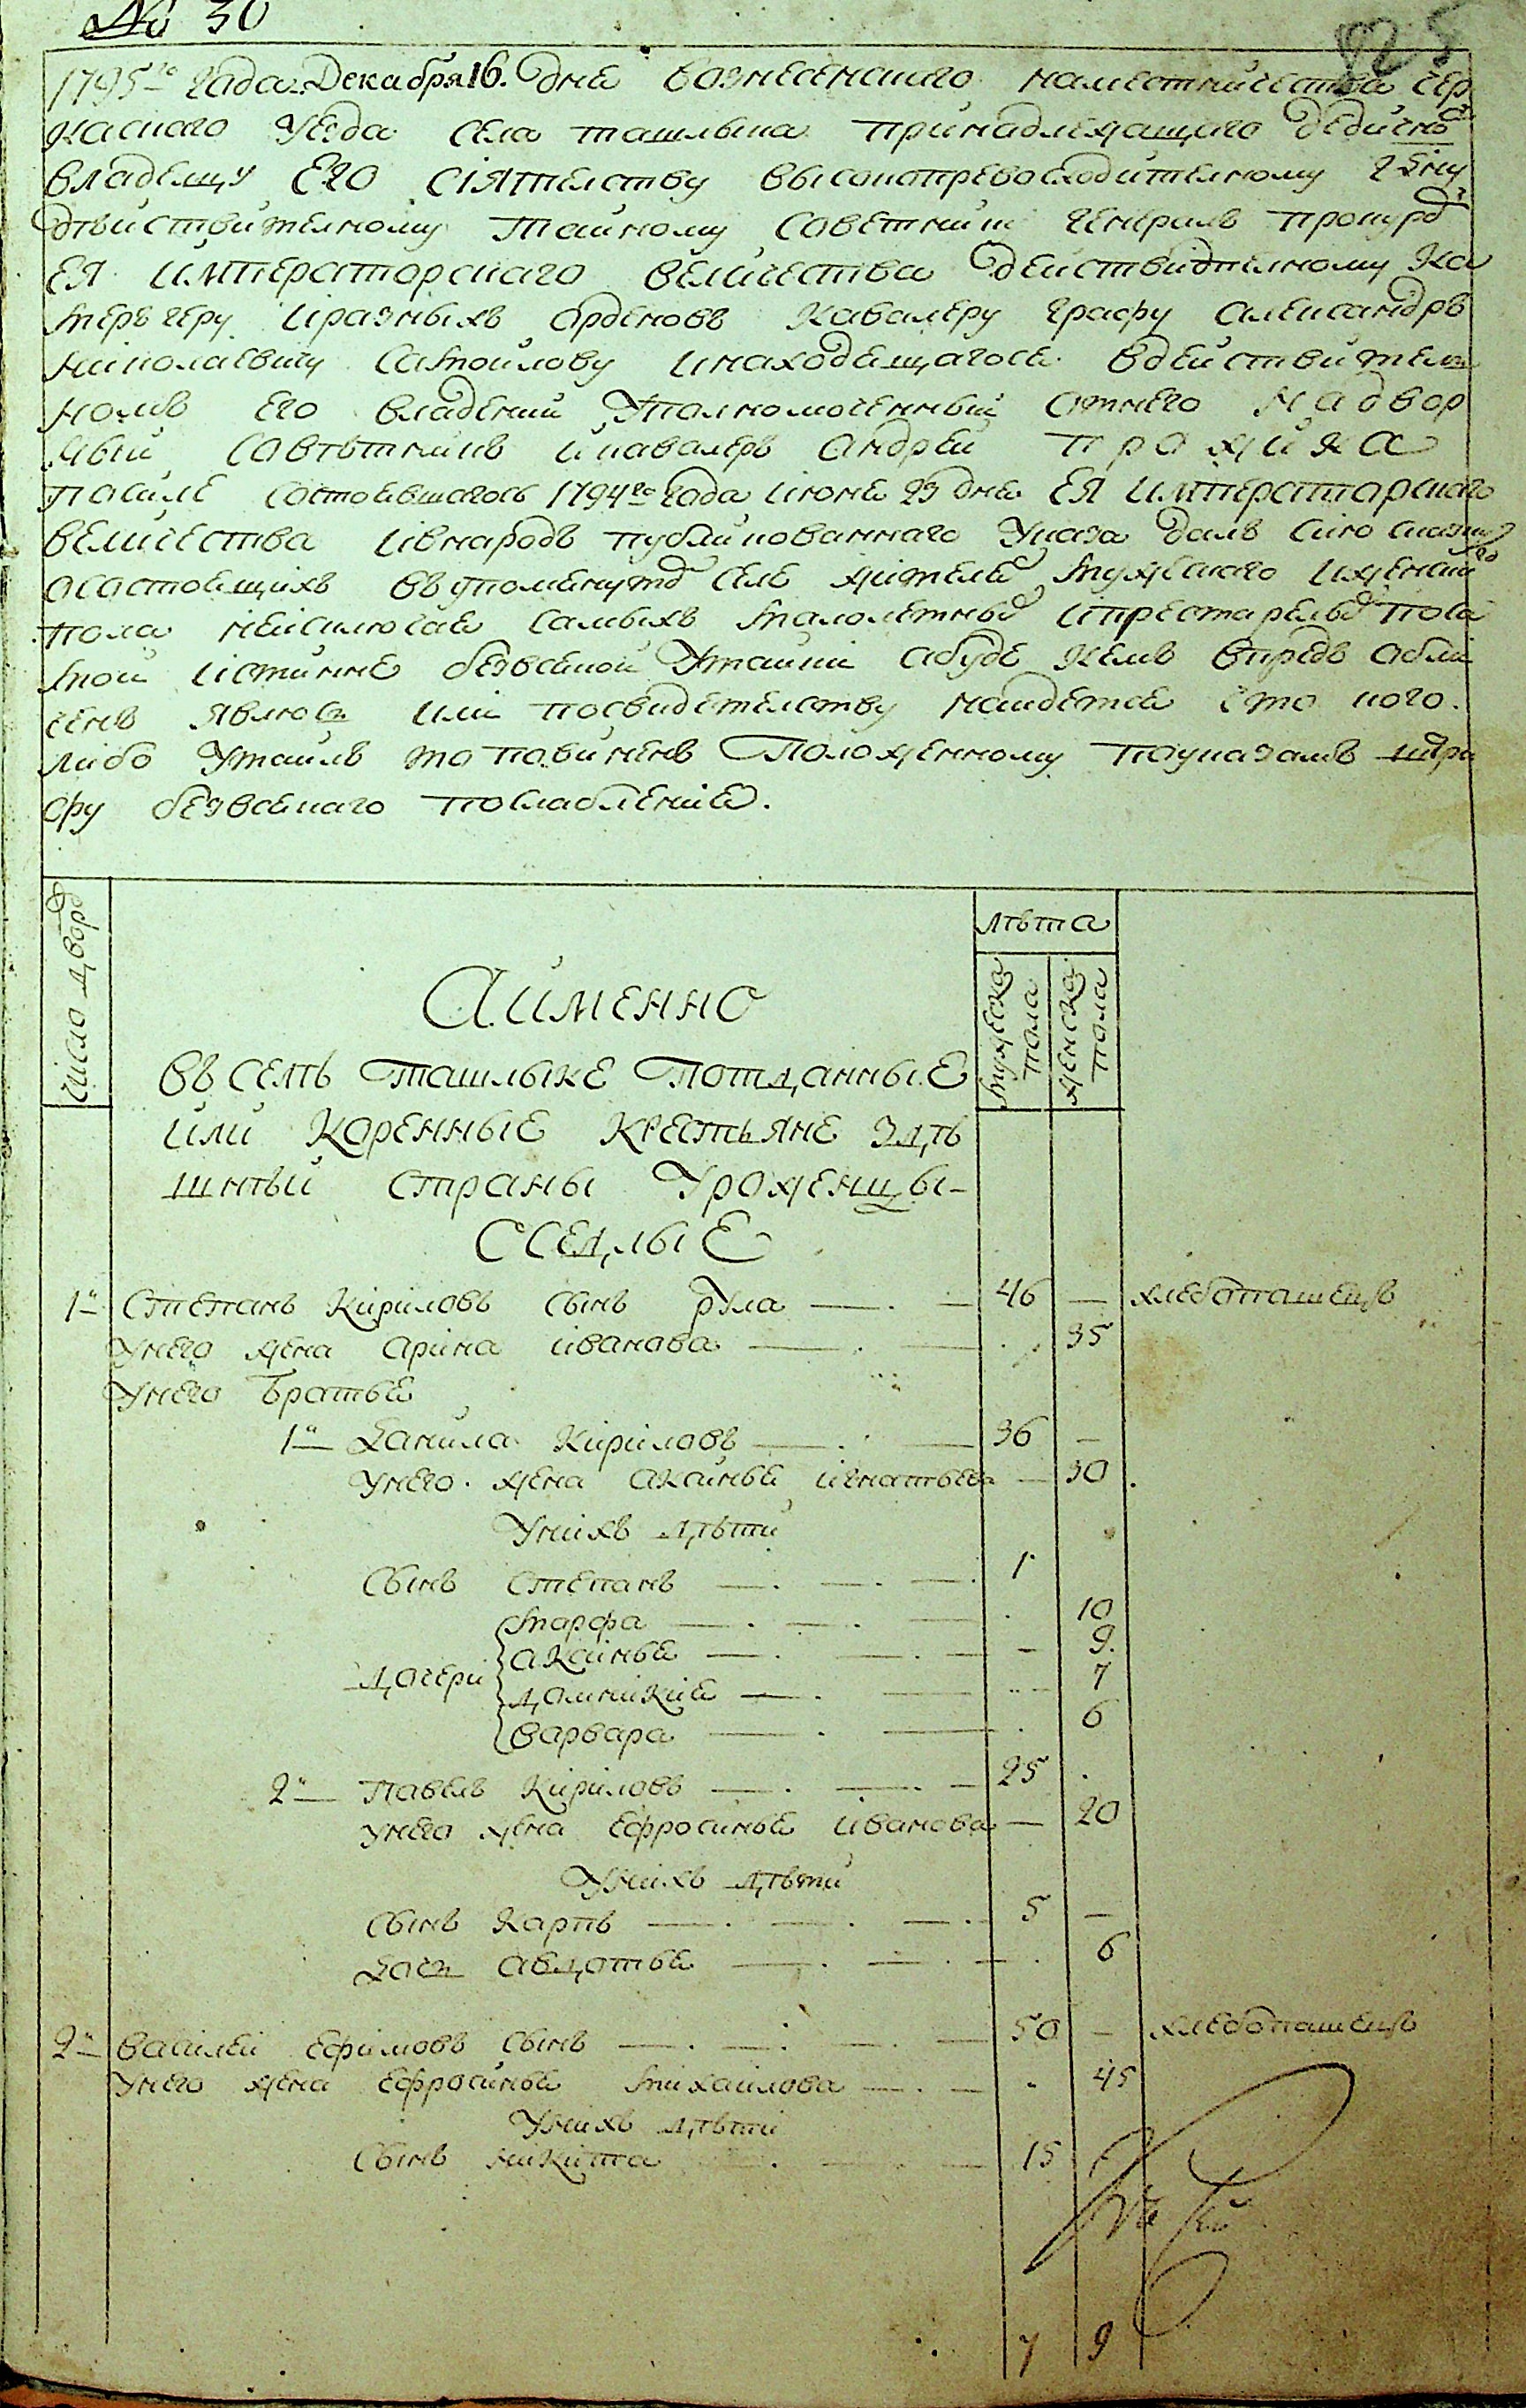 № 30
125
1795го Года Декабря 16. дня вознесенскаго наместничества чер
каскаго уезда села ташлыка принадлежащаго дедичнѣ
владелцу Его сіятелству высокопревосходителному Гдну
дѣйствителному тайному советнику генералъ прокурд
ея императорскаго величества действителному ка
меръ геру и разныхъ орденовъ кавалеру графу александръ
николаевичу самойлову и находящагося в действител
номъ его владении уполномоченный отнего надвор
ный совѣтникъ и кавалеръ андрей
посиле состоевшагось 1794го Года июня 23 дня Ея императорскаго
величества ивнародъ публикованнаго указа далъ сию сказку
осостоящихъ въ упомянутд селе жителе мужескаго иженскаго
пола неисключая самыхъ малолетныд ипрестарелыд поса
мой истинне безвсякой утайки абуде кемъ впредь обли
ченъ явлюсь или посвидетелству найдется что кого
либо утаилъ то повиненъ положенному поуказамъ штра
фу безвсякаго послабления.
число дворд
лѣта
мужеска пола
женска пола
А именно
въ селѣ ташлыке потданные
или коренные крестьяне здѣ
шнѣй страны уроженцы-
оседлые
1й Степанъ Кириловъ сынъ рула 46 — хлебопашецъ
унего жена арина иванова 35
унего братья
1й Данила Кириловъ 36 —
унего жена акснья игнатьева — 30
унихъ дѣти
сынъ степанъ 1
дочери
марфа 10
аксинья 9
домникия 7
варвара 6
2й Павелъ Кириловъ 25
унего жена ефросинья иванова — 20
унихъ дѣти
сынъ карпъ 5 —
дочь авдотья 6
2й василей ефимовъ сынъ 50 — хлебопашецъ
унего жена ефросинья михайлова 45
унихъ дѣти
сынъ никита 15
7 9